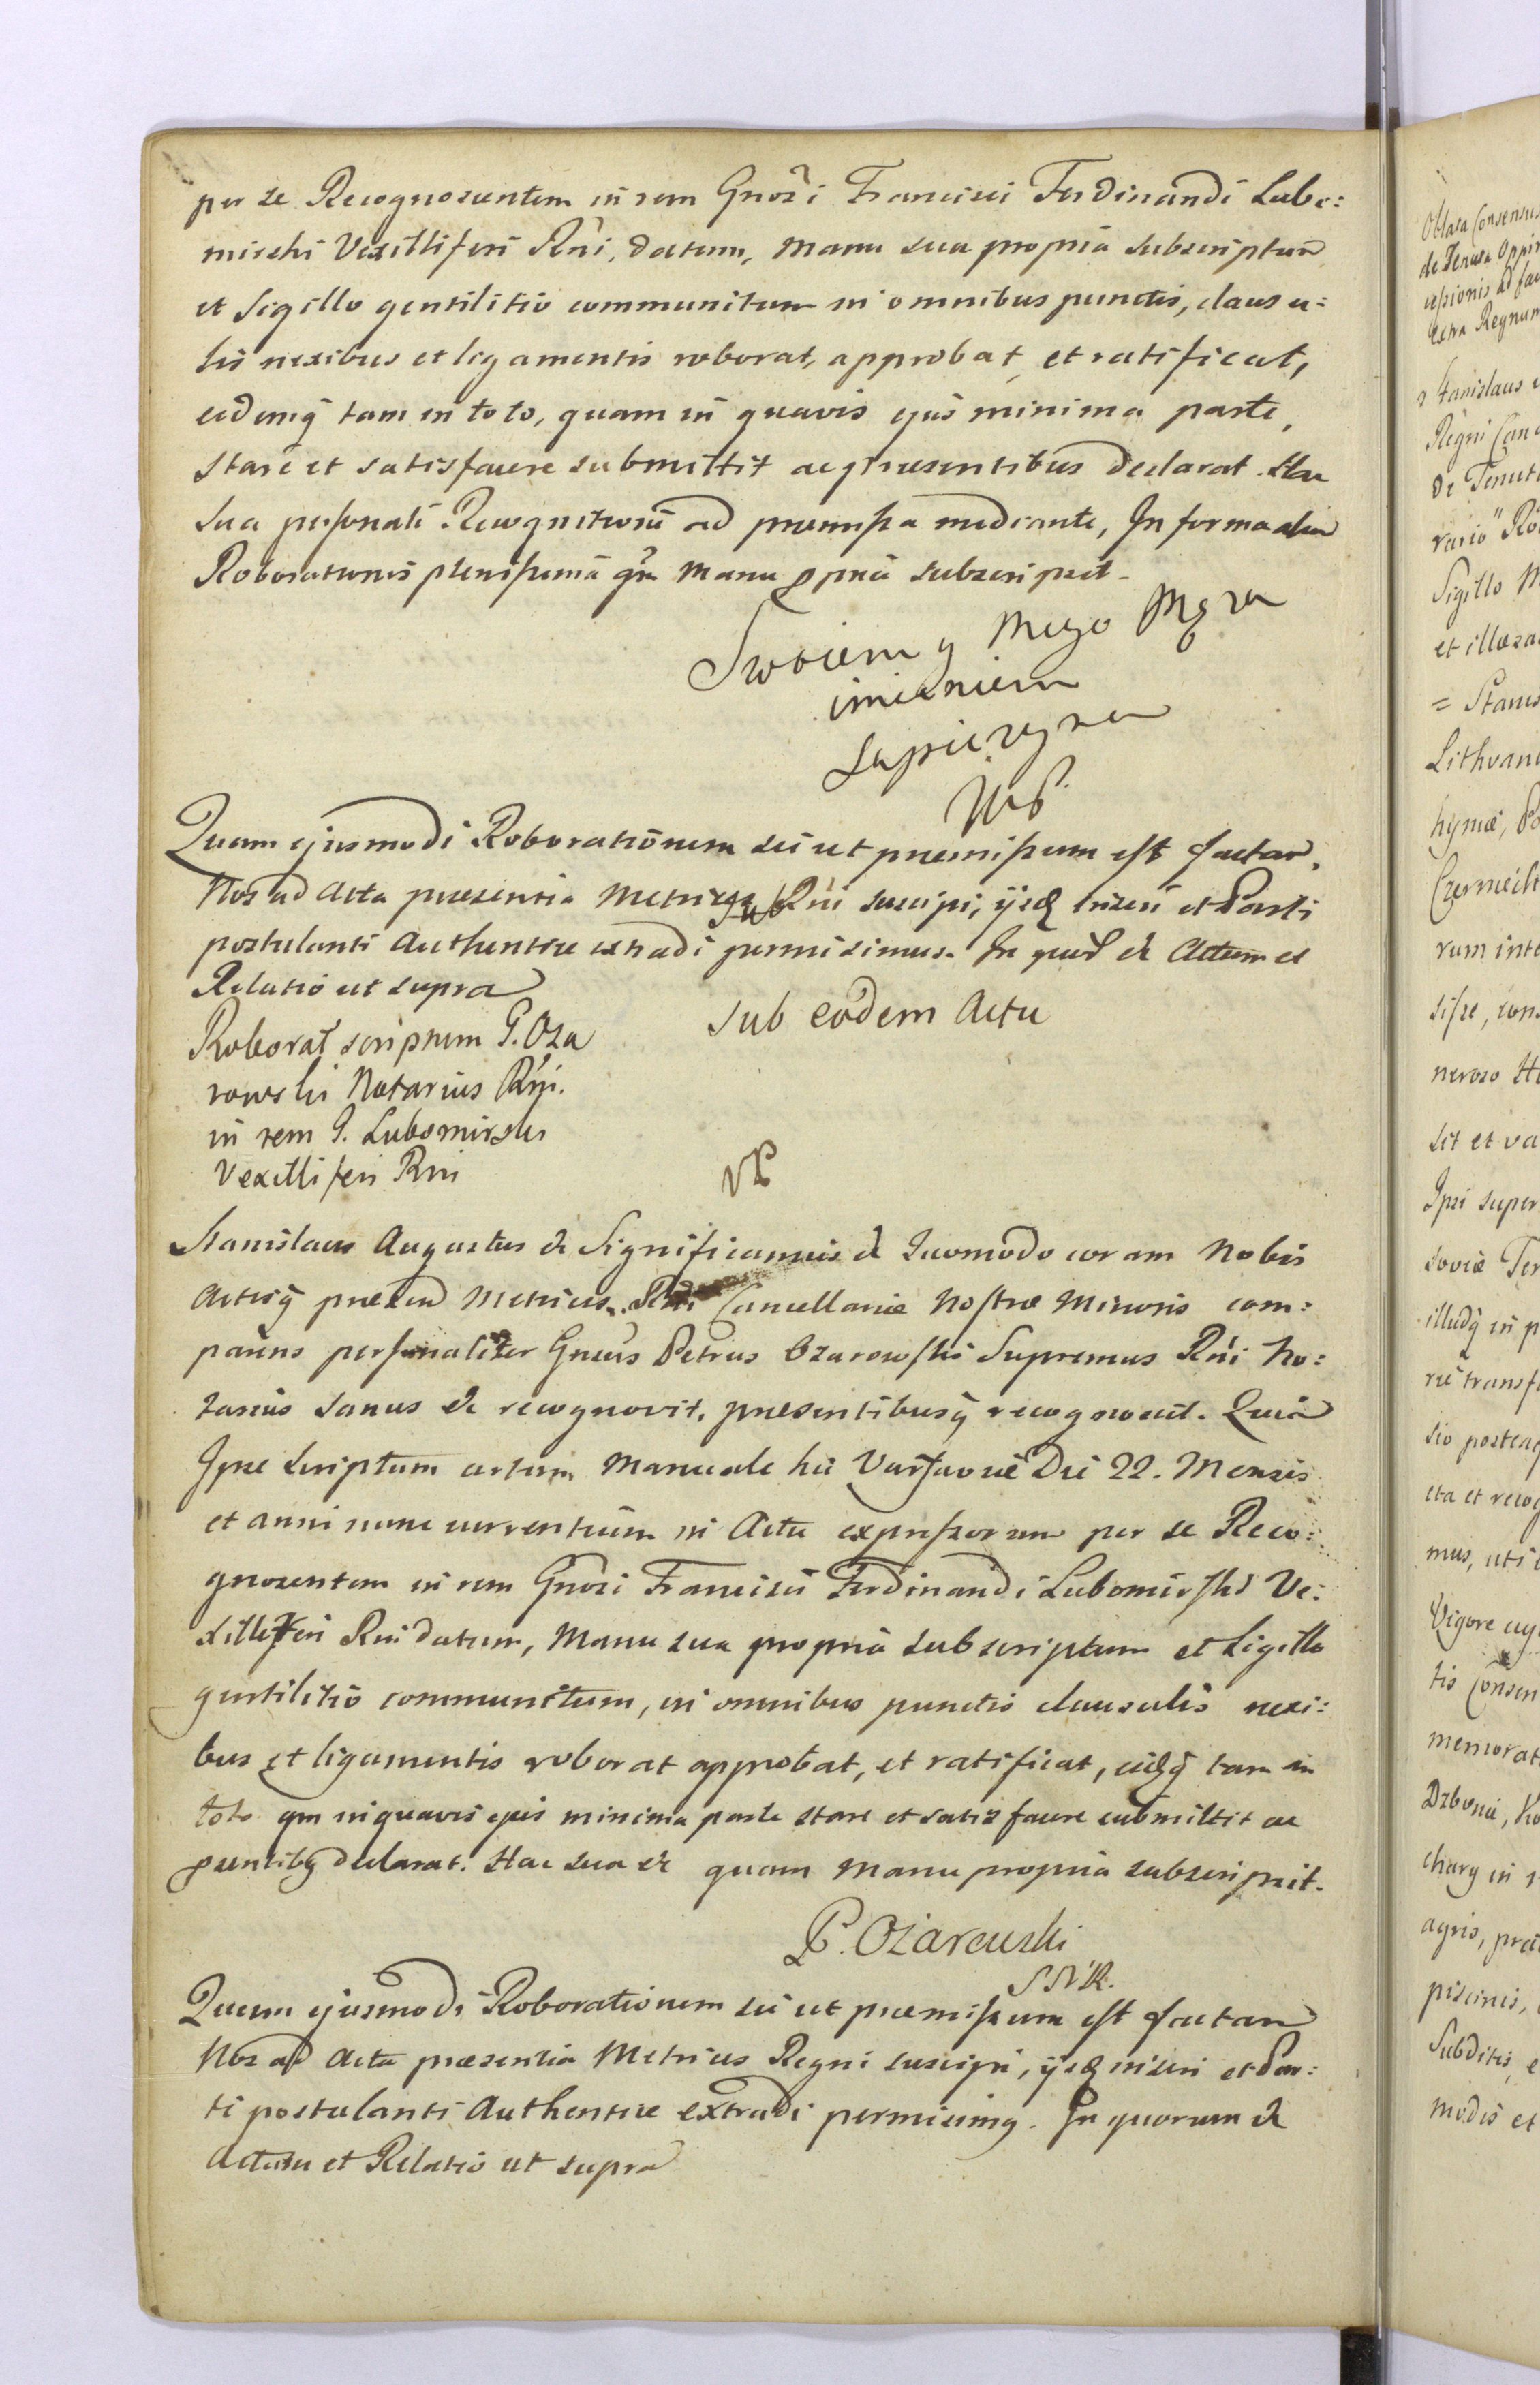 per se Recognoscentem in rem Gnosi Francisci Ferdinandi Lubo:
mirski Vexilliferi Rni, datum, Manu sua propria subscriptum
et Sigillo gentilitio communitum in omnibus punctis, clausu:
lis nexibus et ligamentis roborat, approbat, et ratificat,
eidemq tam in toto, quam in quavis ejus minima parte,
stare et satisfacere submittit ac praesentibus declarat. Hac
sua personali Recognitione ad praemissa mediante, In forma alia
Roborationis plenissima qm Manu ppria subscripsit.
Swoiem y Mego Męza
imieniem
Sapiezyna
Mp.
Quam ejusmodi Roborationem sic ut praemissum est factam,
Nos ad Acta praesentia Metrices Rni suscipi, ijsq inseri et Parti
postulanti Authentice extradi permisimus. In quor et Actum et
Relatio ut supra
sub eodem Actu
Roborat scriptum G. Oza
rowski Notarius Rni.
in rem G. Lubomirski
Vexilliferi Rni
Stanislaus Augustus et Significamus et Quomodo coram Nobis
Actisq praesen Metrices Rni Cancellariae Nostrae Minoris com:
parens personaliter Gneus Petrus Ozarowski Supremus Rni No:
tarius sanus et recognovit, praesentibusq recognoscit. Quia
Ipse scriptum certum Manuale hic Varsaviae Die 22. Mensis
et anni nunc currentium in Actu expressorum per se Reco:
gnoscentem in rem Gnosi Francisci Ferdinandi Lubomirski Ve:
xilliferi Rni datum, Manu sua propria subscriptum et Sigillo
gentilitio communitum, in omnibus punctis clausulis nexi:
bus et ligamentis roborat approbat, et ratificat, eidq tam in
toto qm in quavis ejus minima parte stare et satisfacere submittit ac
pzentibq declarat. Hac sua et quam Manu propria subscripsit.
P. Ożarowski
S N R.
Quam ejusmodi Roborationem sic ut praemissum est factam
Nos ad Acta praesentia Metrices Regni suscipi, ijsq inseri et Par:
ti postulanti Authentice extradi permisimq. In quorum et
Actum et Relatio ut supra
Oblata Consensus
de Tenuta
Extra Regnum
Stanislaus
Regni Canc
De Tenut
Sigillo M
= Stanis
Lithvani
rum inte
neroso
sit et va
Ipsi super
illudq in p
mus, uti
Vigore cuj
tis Consen
memorat
agris, pra
piscinis,
Subditis, e
modis et